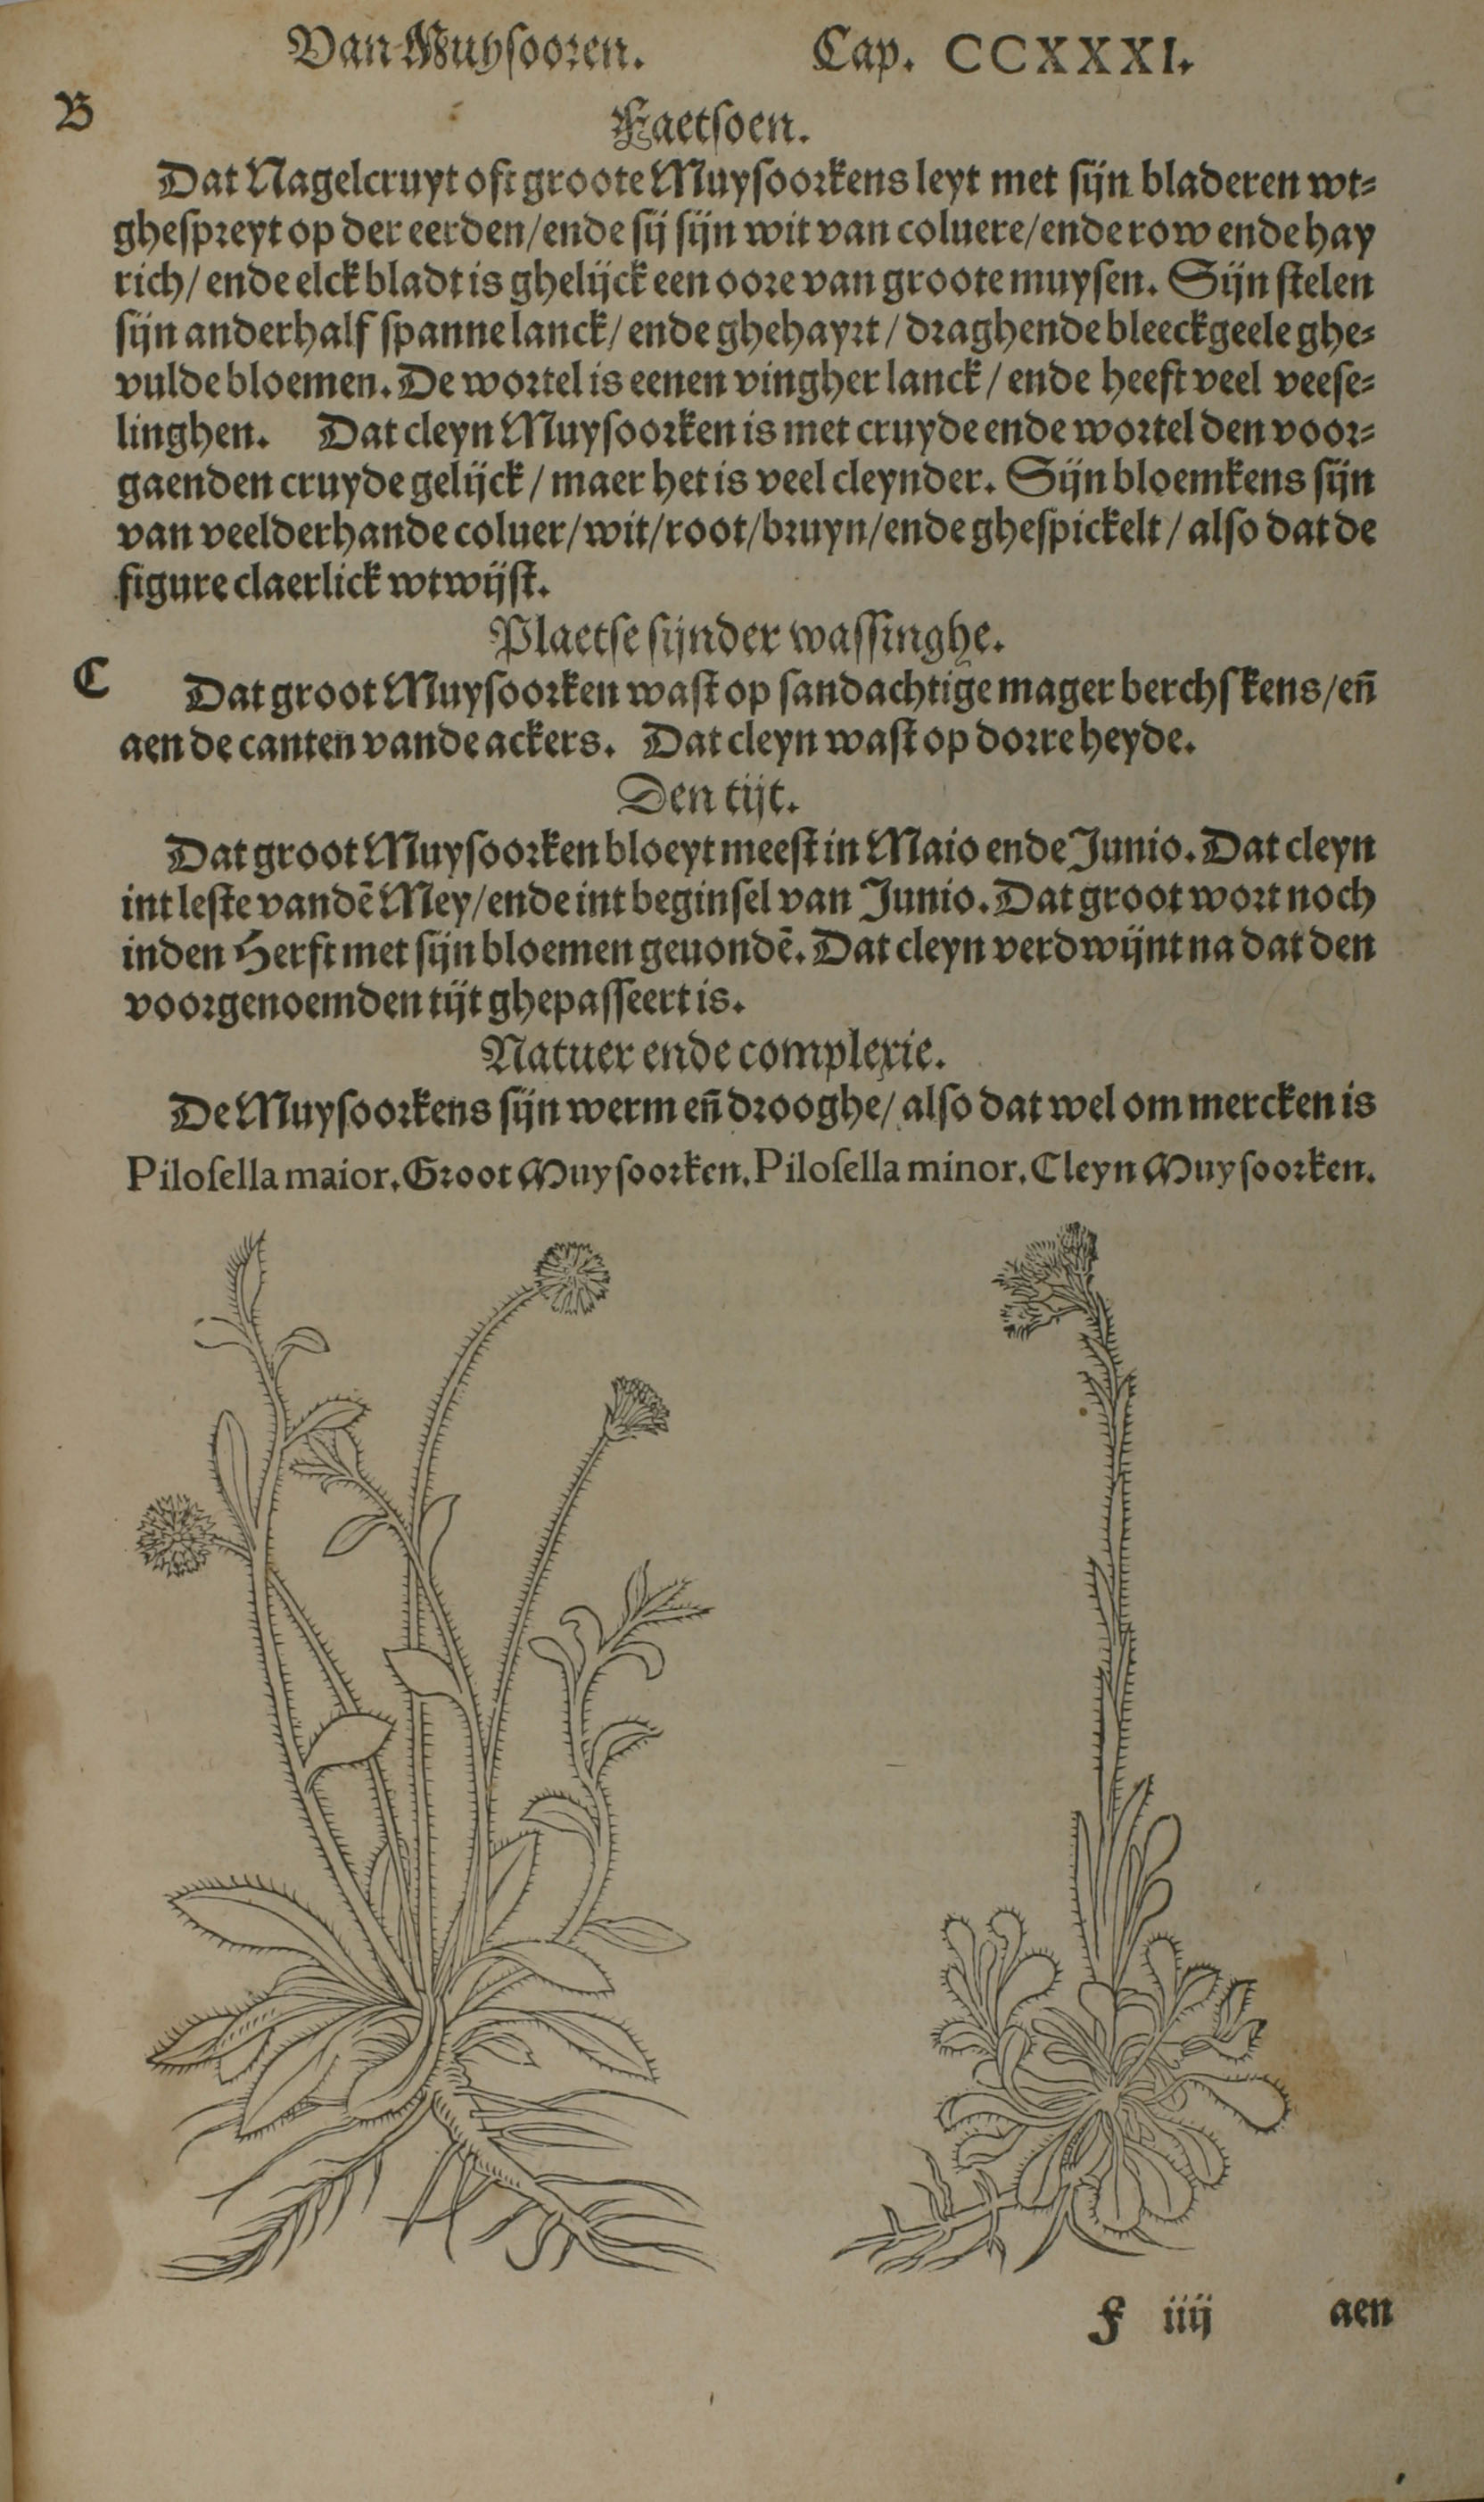 Van Muysooren. Cap. CCXXXI.
B
Faetsoen.
Dat Nagelcruyt oft groote Muysoorkens leyt met sijn bladeren wt=
ghespreyt op der eerden/ende sij sijn wit van coluere/ende row ende hay
rich/ende elck bladt is ghelijck een oore van groote muysen. Sijn stelen
sijn anderhalf spanne lanck/ende ghehayrt/draghende bleeckgeele ghe=
vulde bloemen. De wortel is eenen vingher lanck/ende heeft veel veese=
linghen. Dat cleyn Muysoorken is met cruyde ende wortel den voor=
gaenden cruyde gelijck/maer het is veel cleynder. Sijn bloemkens sijn
van veelderhande coluer/wit/root/bruyn/ende ghespickelt/also dat de
figure claerlick wtwijst.
Plaetse sijnder wassinghe.
C
Dat groot Muysoorken wast op sandachtige mager berchskens/eñ
aen de canten vande ackers. Dat cleyn wast op dorre heyde.
Den tijt.
Dat groot Muysoorken bloeyt meest in Maio ende Junio. Dat cleyn
int leste vandē Mey/ende int beginsel van Junio. Dat groot wort noch
inden Herfst met sijn bloemen geuondē. Dat cleyn verdwijnt na dat den
voorgenoemden tijt ghepasseert is.
Natuer ende complexie.
De Muysoorkens sijn werm eñ drooghe/also dat wel om mercken is
Pilosella maior. Groot Muysoorken. Pilosella minor. Cleyn Muysoorken.
f iiij aen